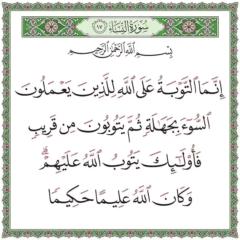 سورة النساء ١٧
بِسْمِ اللَّهِ الرَّحْمَنِ الرَّحِيمِ
إِنَّمَا التَّوْبَةُ عَلَى اللَّهِ لِلَّذِينَ يَعْمَلُونَ
السُّوٓءَ بِجَهَٰلَةٍ ثُمَّ يَتُوبُونَ مِن قَرِيبٍ
فَأُو۟لَٰٓئِكَ يَتُوبُ اللَّهُ عَلَيْهِمْ ۗ
وَكَانَ اللَّهُ عَلِيمًا حَكِيمًا